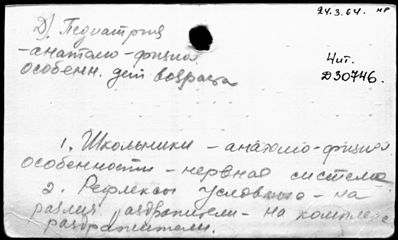 24.3.64. нр
Д) Педиатрия
-анатомо-физиол
особенн. дет возраста
Чит.
Д30746.
1. Школьники - анатомо-физиол
особенности - нервная система
2. Рефлексы условно - на
различ. раздражители - на комплекс
раздражители.